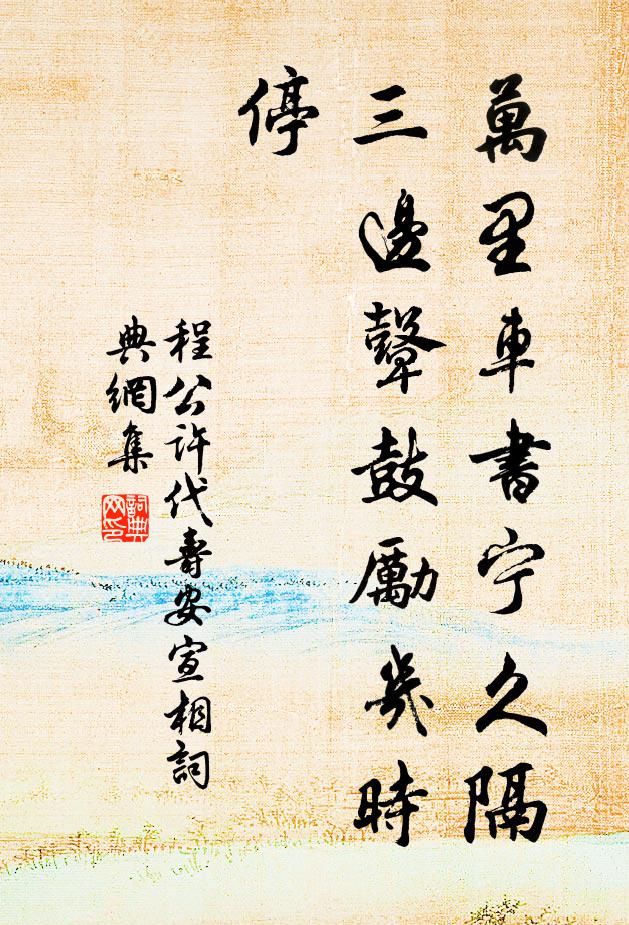 萬里車書宁久隔
三邊鼙鼓勵幾時
停
程公許代壽安宣相詞
典網集
詞典
网印